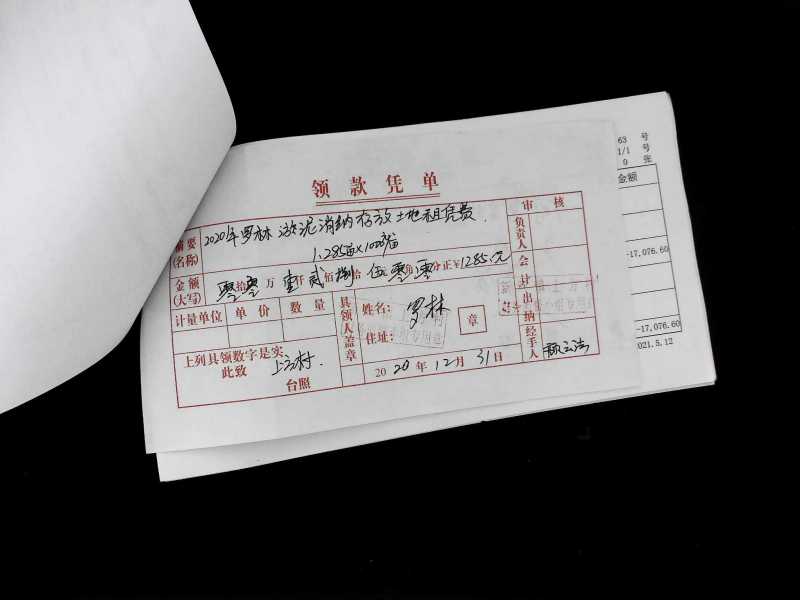 领款凭单
摘要(名称) 2020年罗林淤泥消纳存放土地租凭费. 审核
1.285亩×1000/亩 负责人
金额(大写) 零拾零万壹仟贰佰捌拾伍元零角零分正￥1285.元 会计
计量单位 单价 数量 具领人盖章 姓名: 罗林 章 出纳
住址:
上列具领数字是实
此致
台照 2020年12月31日 经手人
63 号
1/1 号
0 张
金额
-17,076.60
-17,076.60
2021.5.12